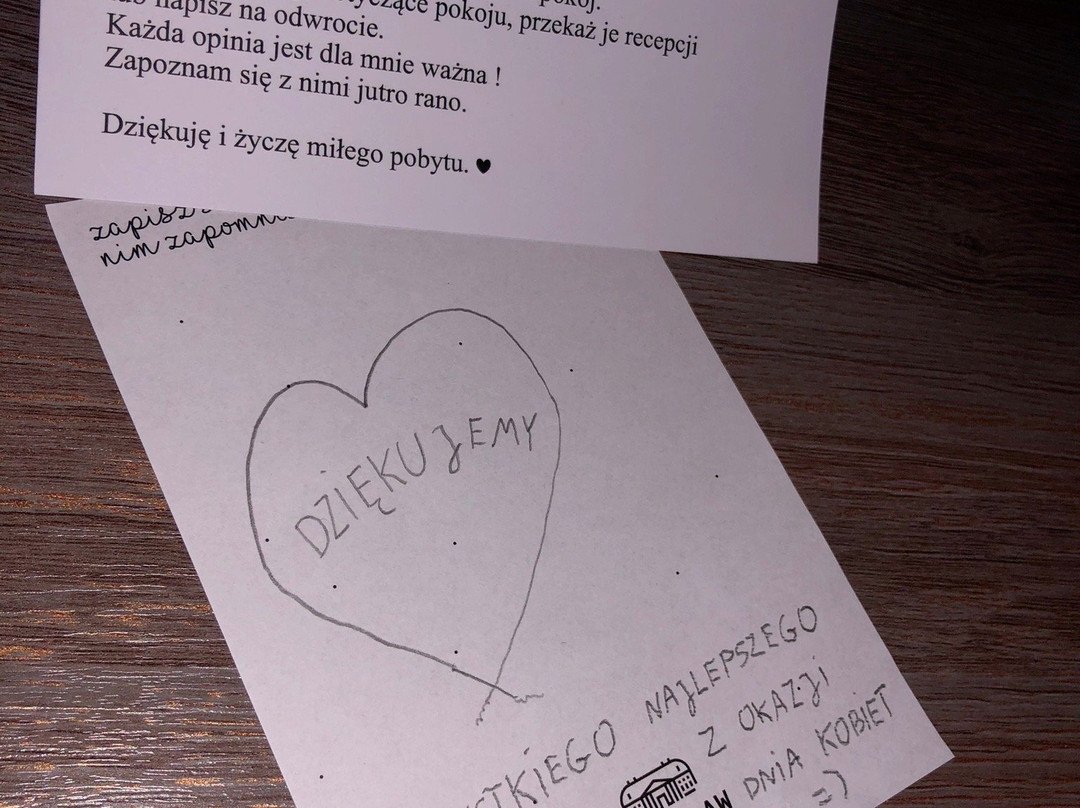 pokój.
pokoju, przekaż je recepcji
napisz na odwrocie.
Każda opinia jest dla mnie ważna !
Zapoznam się z nimi jutro rano.
Dziękuję i życzę miłego pobytu. ♥
zapisz
nim zapomni
DZIĘKUJEMY
STKIEGO NAJLEPSZEGO
Z OKAZJI
DNIA KOBIET
=)
AW